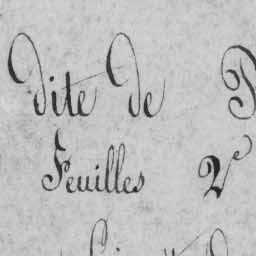 dite de
Feuilles 2e